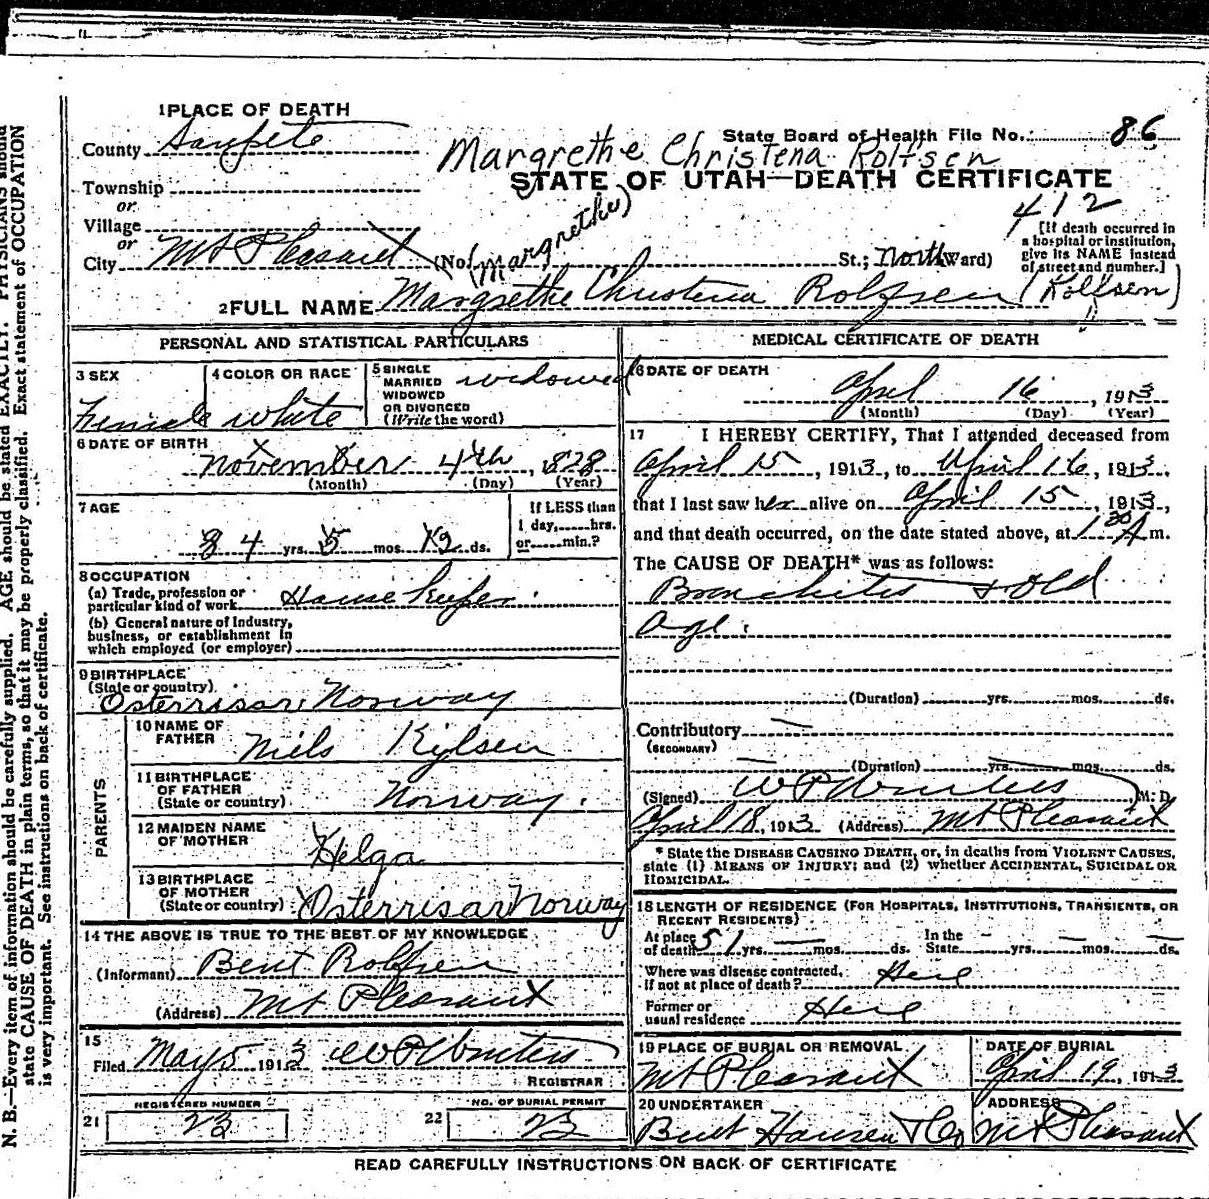 1 PLACE OF DEATH
County Sanpete
State Board of Health File No. 86
Margrethe Christena Rolfsen
STATE OF UTAH—DEATH CERTIFICATE
Township
or
Village
or
City Mt Pleasant (No. St.; North Ward)
(Margrethe)
412
[If death occurred in
a hospital or institution,
give its NAME instead
of street and number.]
2 FULL NAME Margrethe Christena Rolfsen (Rolfsen)
PERSONAL AND STATISTICAL PARTICULARS
3 SEX
Female
4 COLOR OR RACE
white
5 SINGLE
MARRIED
WIDOWED
OR DIVORCED
(Write the word)
widowed
6 DATE OF BIRTH
November 4th, 1828
(Month) (Day) (Year)
7 AGE
84 yrs. 5 mos. 12 ds.
If LESS than
1 day,......hrs.
or......min.?
8 OCCUPATION
(a) Trade, profession or
particular kind of work House Keeper
(b) General nature of Industry,
business, or establishment in
which employed (or employer)
9 BIRTHPLACE
(State or country)
Osterrisar Norway
PARENTS
10 NAME OF
FATHER Niels Kylsen
11 BIRTHPLACE
OF FATHER
(State or country) Norway.
12 MAIDEN NAME
OF MOTHER Helga
13 BIRTHPLACE
OF MOTHER
(State or country) Osterrisar Norway
14 THE ABOVE IS TRUE TO THE BEST OF MY KNOWLEDGE
(Informant) Bent Rolfsen
(Address) Mt Pleasant
15
Filed May 5 1913 W P Winters
REGISTRAR
REGISTERED NUMBER
21 23
NO. OF BURIAL PERMIT
22 23
MEDICAL CERTIFICATE OF DEATH
16 DATE OF DEATH
April 16, 1913
(Month) (Day) (Year)
17 I HEREBY CERTIFY, That I attended deceased from
April 15, 1913, to April 16, 1913,
that I last saw her alive on April 15, 1913,
and that death occurred, on the date stated above, at 1 30 A m.
The CAUSE OF DEATH* was as follows:
Bronchites & Old
Age.
(Duration) yrs. mos. ds.
Contributory —
(SECONDARY)
— (Duration) yrs. mos. ds.
(Signed) W P Winters M. D.
April 18, 1913 (Address) Mt Pleasant
* State the DISEASE CAUSING DEATH, or, in deaths from VIOLENT CAUSES,
state (1) MEANS OF INJURY; and (2) whether ACCIDENTAL, SUICIDAL OR
HOMICIDAL.
18 LENGTH OF RESIDENCE (FOR HOSPITALS, INSTITUTIONS, TRANSIENTS, OR
RECENT RESIDENTS)
At place In the
of death 51 yrs. — mos. ds. State — yrs. — mos. — ds.
Where was disease contracted,
if not at place of death? Here
Former or
usual residence Here
19 PLACE OF BURIAL OR REMOVAL
Mt Pleasant
DATE OF BURIAL
April 19, 1913
20 UNDERTAKER
Bent Hansen & Co
ADDRESS
Mt Pleasant
READ CAREFULLY INSTRUCTIONS ON BACK OF CERTIFICATE
N. B.—Every item of information should be carefully supplied. AGE should be stated EXACTLY. PHYSICIANS should
state CAUSE OF DEATH in plain terms, so that it may be properly classified. Exact statement of OCCUPATION
is very important. See instructions on back of certificate.